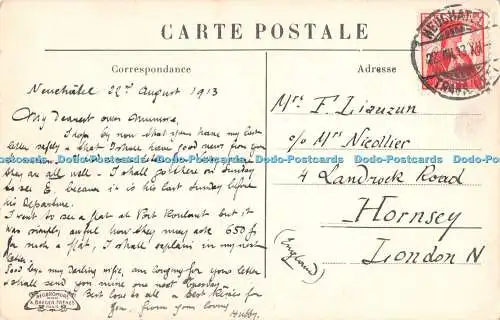 CARTE POSTALE
Correspondance
Adresse
Neuchâtel 22nd August 1913
My dearest own Mummie,
I hope by now that you have my last
letter safely & that I shall have good news from you
they are all well - I shall go there on Sunday
to see E. because it is his last Sunday before
his departure.
I went to see a flat at Port Roulant but it
was simply awful how they may ask 650 fr
for such a flat, I shall explain in my next
letter.
Good bye my darling wife, am longing for your letter
I shall send you mine one next Tuesday
Best love to all & best Kisses for
you. from your loving
Hubby.
Mrs F. Liauzun
c/o Mrs Niedlier
4 Landrock Road
Hornsey
London N
(England)
Dodo-Postcards Dodo-Postcards Dodo-Postcards Dodo-Postcards